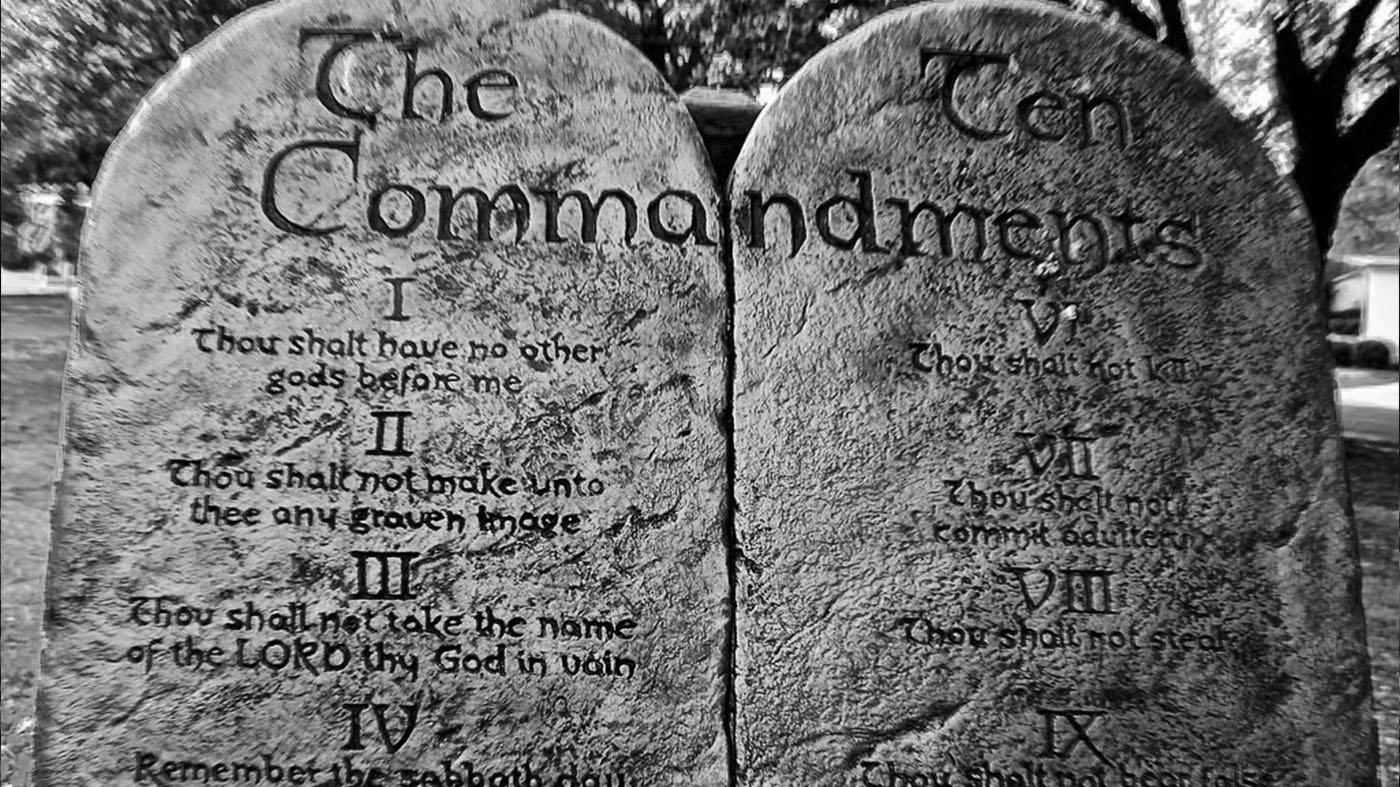 The Ten
Commandments
I
Thou shalt have no other
gods before me
II
Thou shalt not make unto
thee any graven image
III
Thou shall not take the name
of the LORD thy God in vain
IV
Remember the sabbath day
VI
Thou shalt not kill
VII
Thou shalt not
commit adultery
VIII
Thou shalt not steal
IX
Thou shalt not bear false